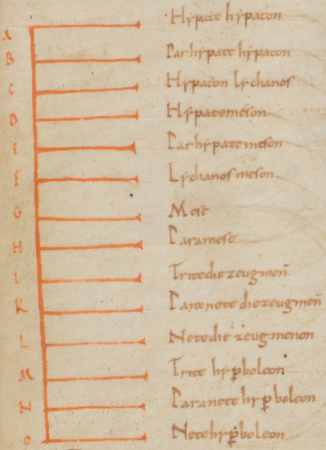 A Hypate hypaton
B Parhypate hypaton
C Hypaton lychanos
D Hypatemeson
E Parhypate meson
F Lychanos meson
G Mese
H Paramese
I Tritediezeugmen̄
K Paranete diezeugmen̄
L Netediezeugmenon
M Trite hyꝑboleon
N Paranete hyꝑboleon
O Netehyꝑboleon